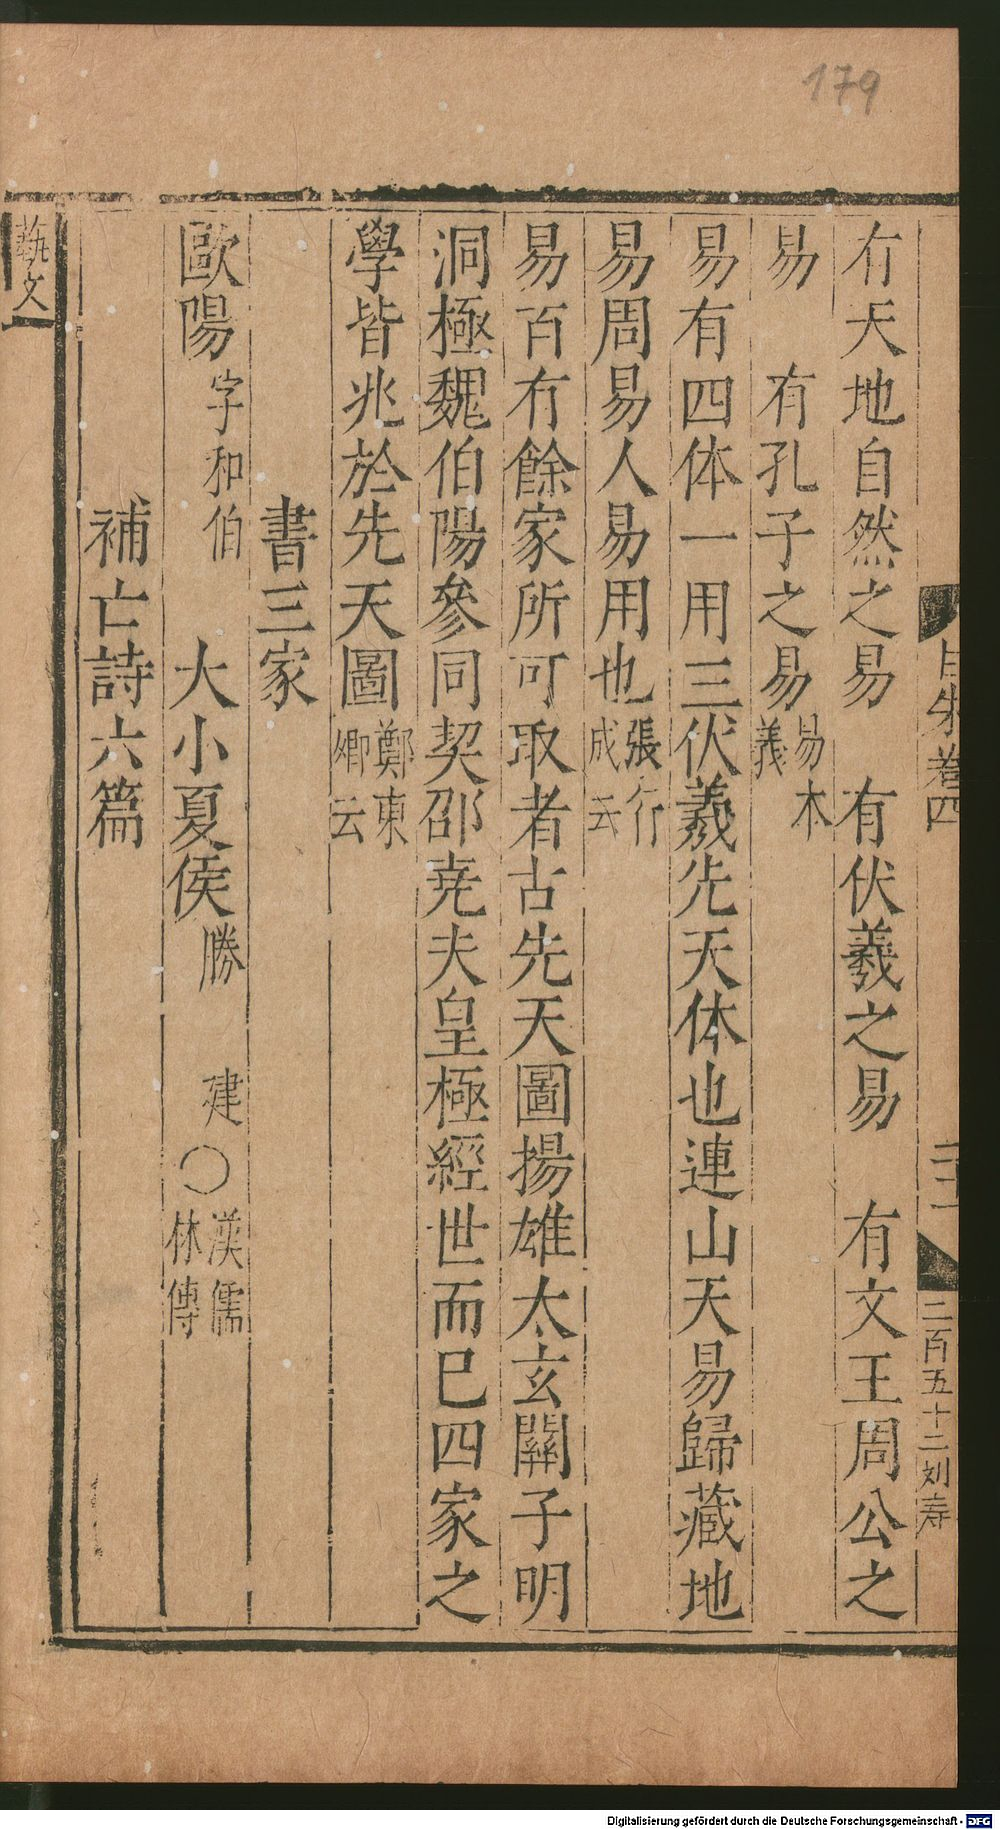 179
有天地自然之易　有伏羲之易　有文王周公之
易　有孔子之易易本義
易有四体一用三伏羲先天体也連山天易歸藏地
易周易人易用也張行成云
易百有餘家所可取者古先天圖揚雄太玄關子明
洞極魏伯陽參同契邵堯夫皇極經世而已四家之
學皆兆於先天圖鄭東卿云
書三家
歐陽字和伯　大小夏侯勝　建○漢儒林傳
補亡詩六篇
藝文
卷四
二百五十二刘寿
Digitalisierung gefördert durch die Deutsche Forschungsgemeinschaft - DFG